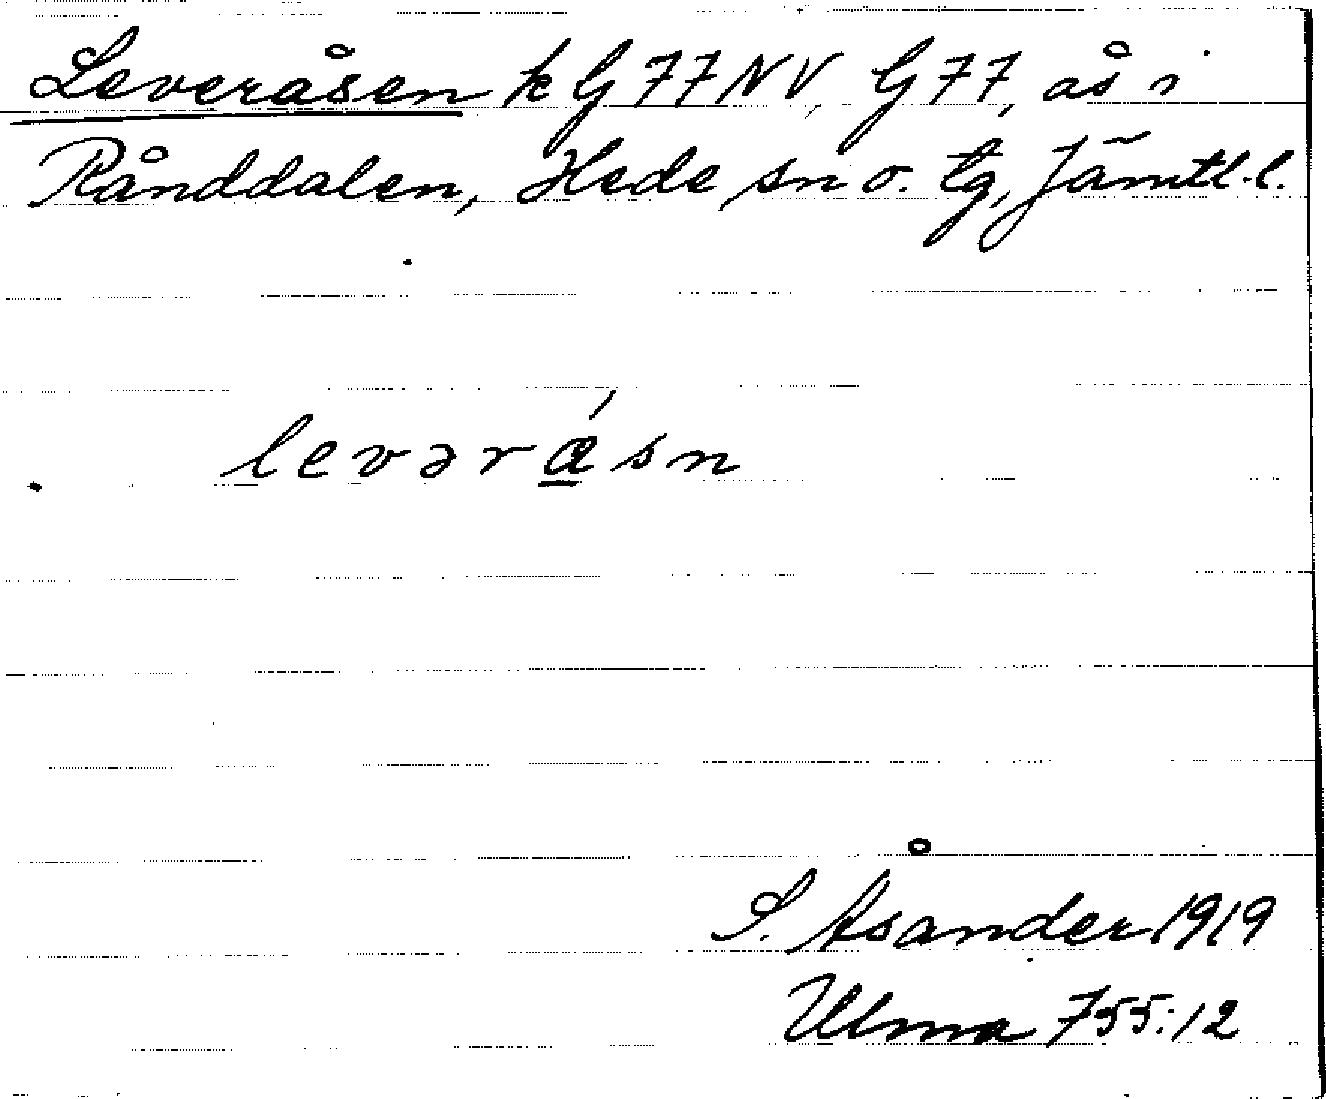 Leveråsen k G 77 NV, G 77, ås i
Rånddalen, Hede sn o. tg, Jämtl. l.
levərǽsn
S. Åsander 1919
Ulma 755:12